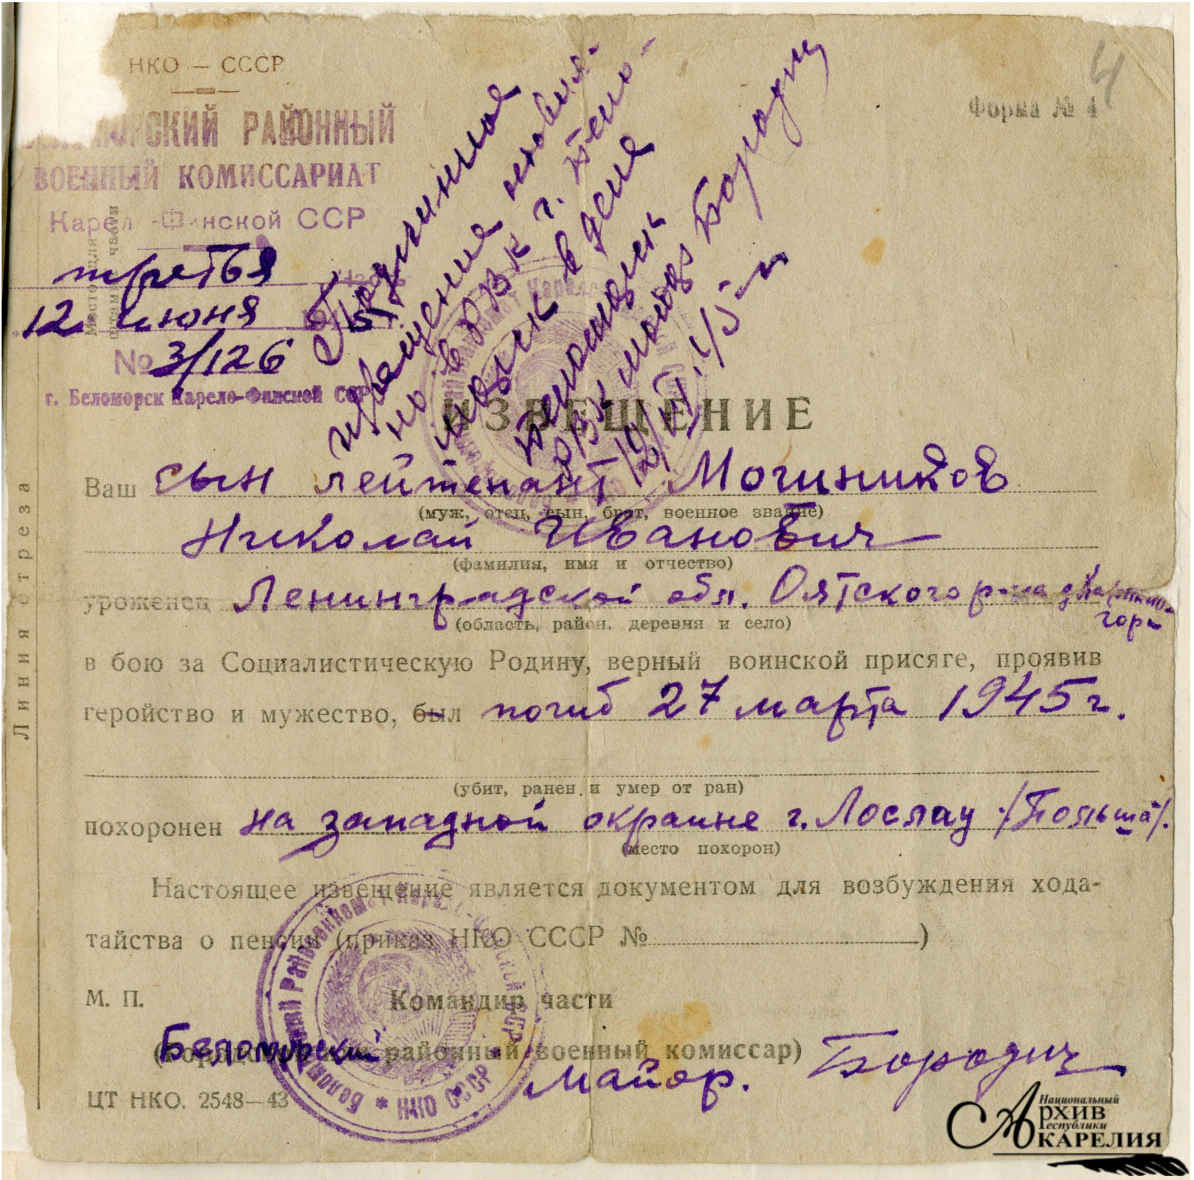 НКО — СССР
Форма № 4
4
БЕЛОМОРСКИЙ РАЙОННЫЙ
ВОЕННЫЙ КОМИССАРИАТ
Карело-Финской ССР
третья часть
12 июня 1945
№ 3/126
г. Беломорск Карело-Финской ССР
Подлинное
извещение оставле-
но в РВК г. Бело-
морск в деле
Беломорск
РВК майор Бородич
12/VI.45 г.
ИЗВЕЩЕНИЕ
Ваш сын лейтенант Могиников
(муж, отец, сын, брат, военное звание)
Николай Иванович
(фамилия, имя и отчество)
уроженец Ленинградской обл. Оятского р-на д.
гора
(область, район, деревня и село)
в бою за Социалистическую Родину, верный воинской присяге, проявив
геройство и мужество, был погиб 27 марта 1945 г.
(убит, ранен и умер от ран)
похоронен на западной окраине г. Лослау /Польша/.
(место похорон)
Настоящее извещение является документом для возбуждения хода-
тайства о пенсии (приказ НКО СССР № )
М. П. Командир части
Беломорский районный военный комиссар)
майор. Бородич
ЦТ НКО. 2548—43
Линия отреза
Беломорский Райвоенкомат Карело-Финской ССР * НКО СССР *
Национальный
АРХИВ
Республики
КАРЕЛИЯ